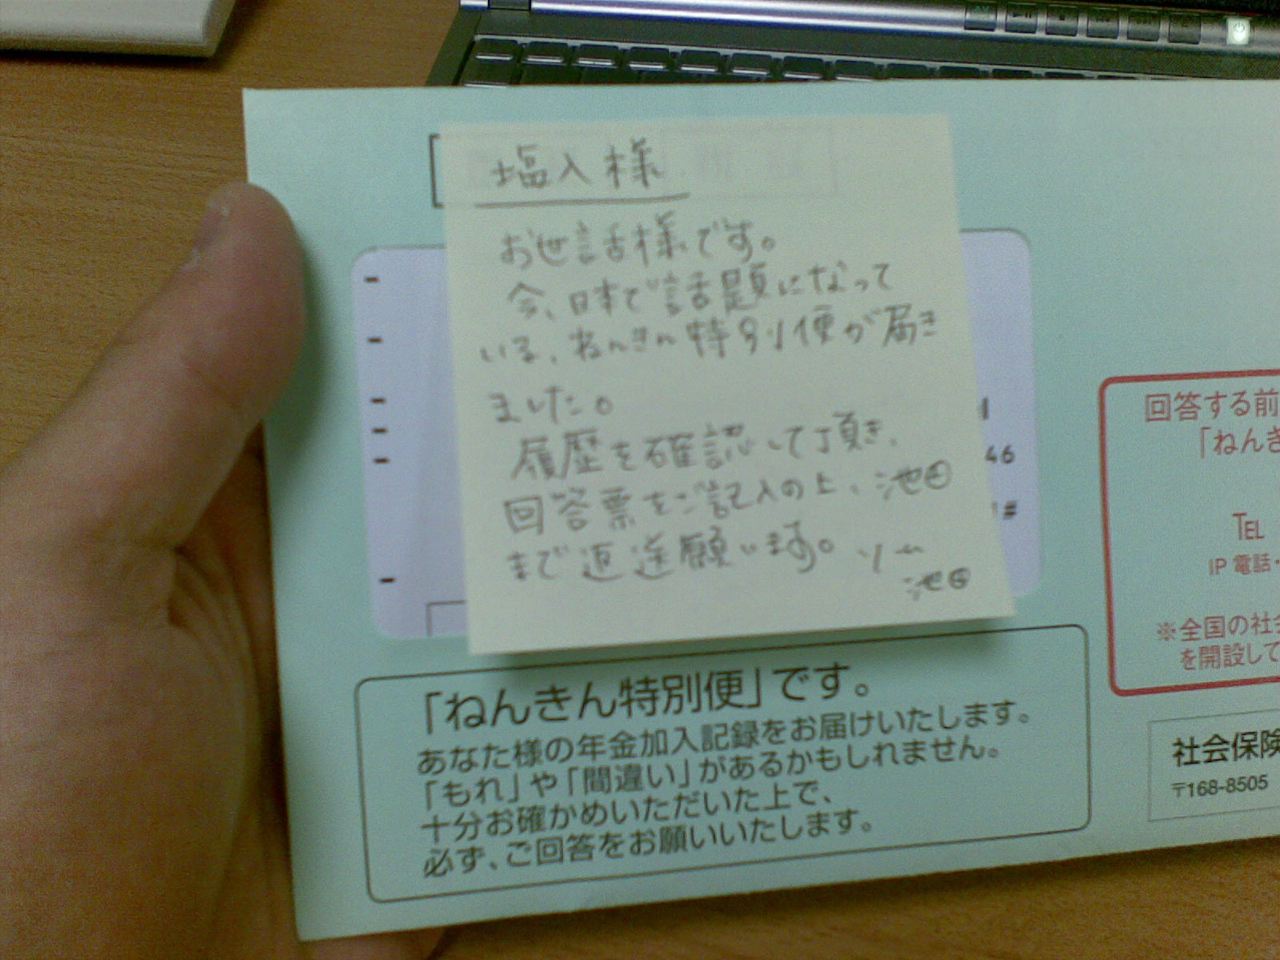 塩入様
お世話様です。
今、日本で話題になって
いる、ねんきん特別便が届き
ました。
履歴を確認して頂き、
回答票をご記入の上、池田
まで返送願います。
池田
46
#
「ねんきん特別便」です。
あなた様の年金加入記録をお届けいたします。
「もれ」や「間違い」があるかもしれません。
十分お確かめいただいた上で、
必ず、ご回答をお願いいたします。
回答する前
「ねんき
TEL
IP 電話・
※全国の社会
を開設して
社会保険
〒168-8505